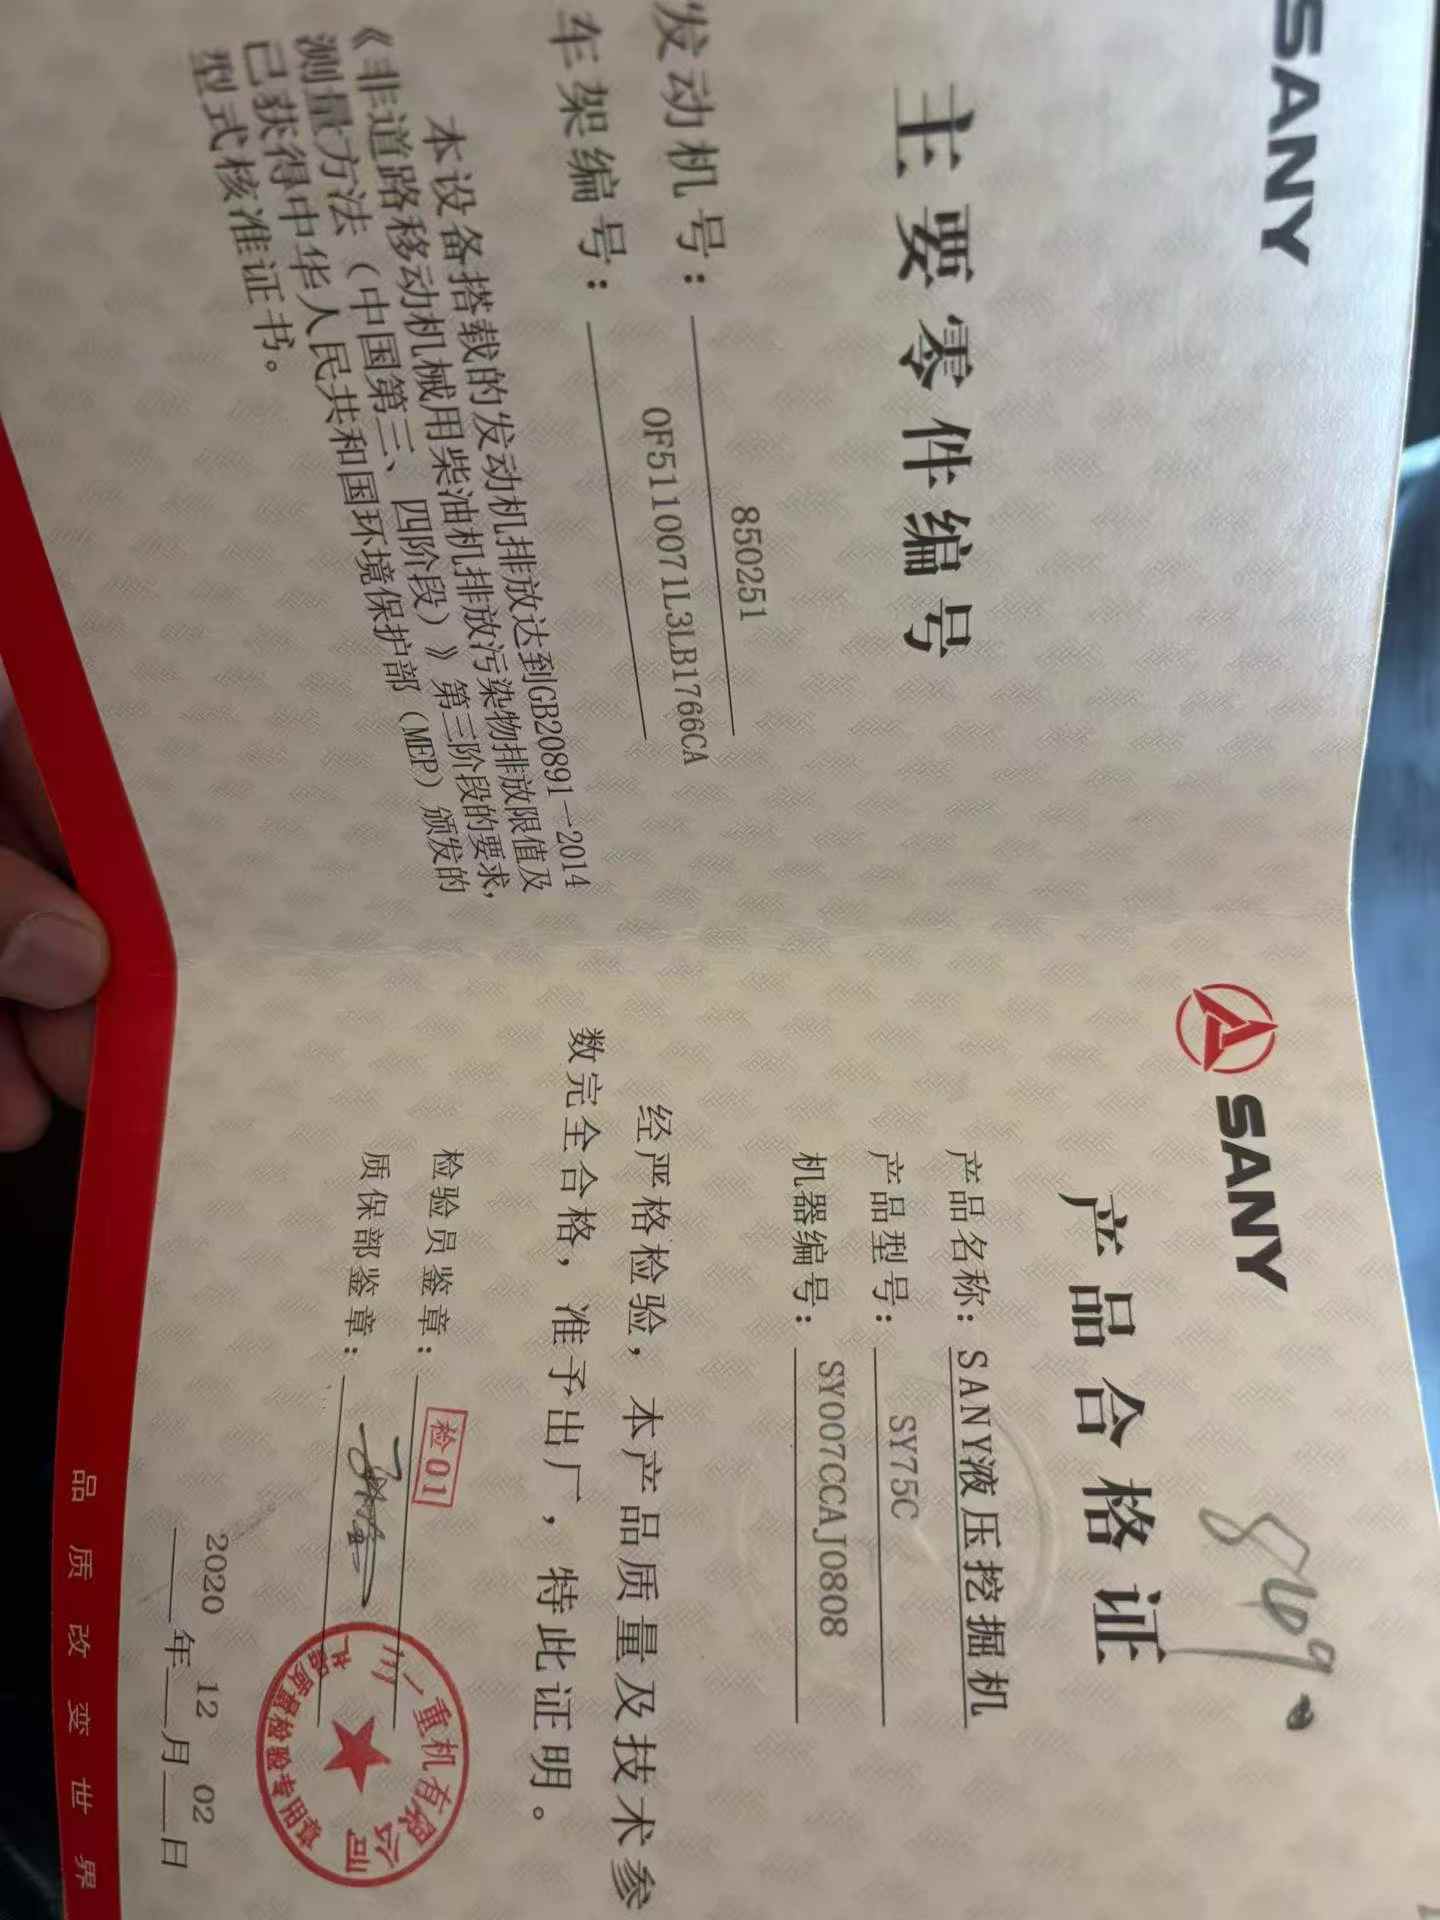 SANY
主要零件编号
发动机号： 850251
车架编号： OF5110071L3LB1766CA
本设备搭载的发动机排放达到GB20891-2014
《非道路移动机械用柴油机排放污染物排放限值及
测量方法（中国第三、四阶段）》第三阶段的要求，
已获得中华人民共和国环境保护部（MEP）颁发的
型式核准证书。
SANY
产品合格证
产品名称： SANY液压挖掘机
产品型号： SY75C
机器编号： SY007CCAJ0808
经严格检验，本产品质量及技术参
数完全合格，准予出厂，特此证明。
检验员鉴章： 检01
质保部鉴章：
一重机有限公司
质量检验专用章
2020年12月02日
品质改变世界